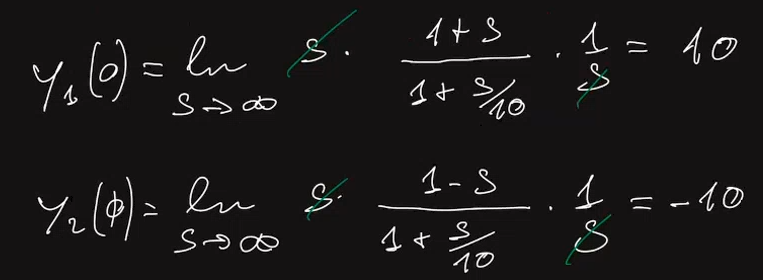 y₁(0) = lim s→∞ s · (1+s)/(1+s/10) · 1/s = 10
y₂(0) = lim s→∞ s · (1-s)/(1+s/10) · 1/s = -10